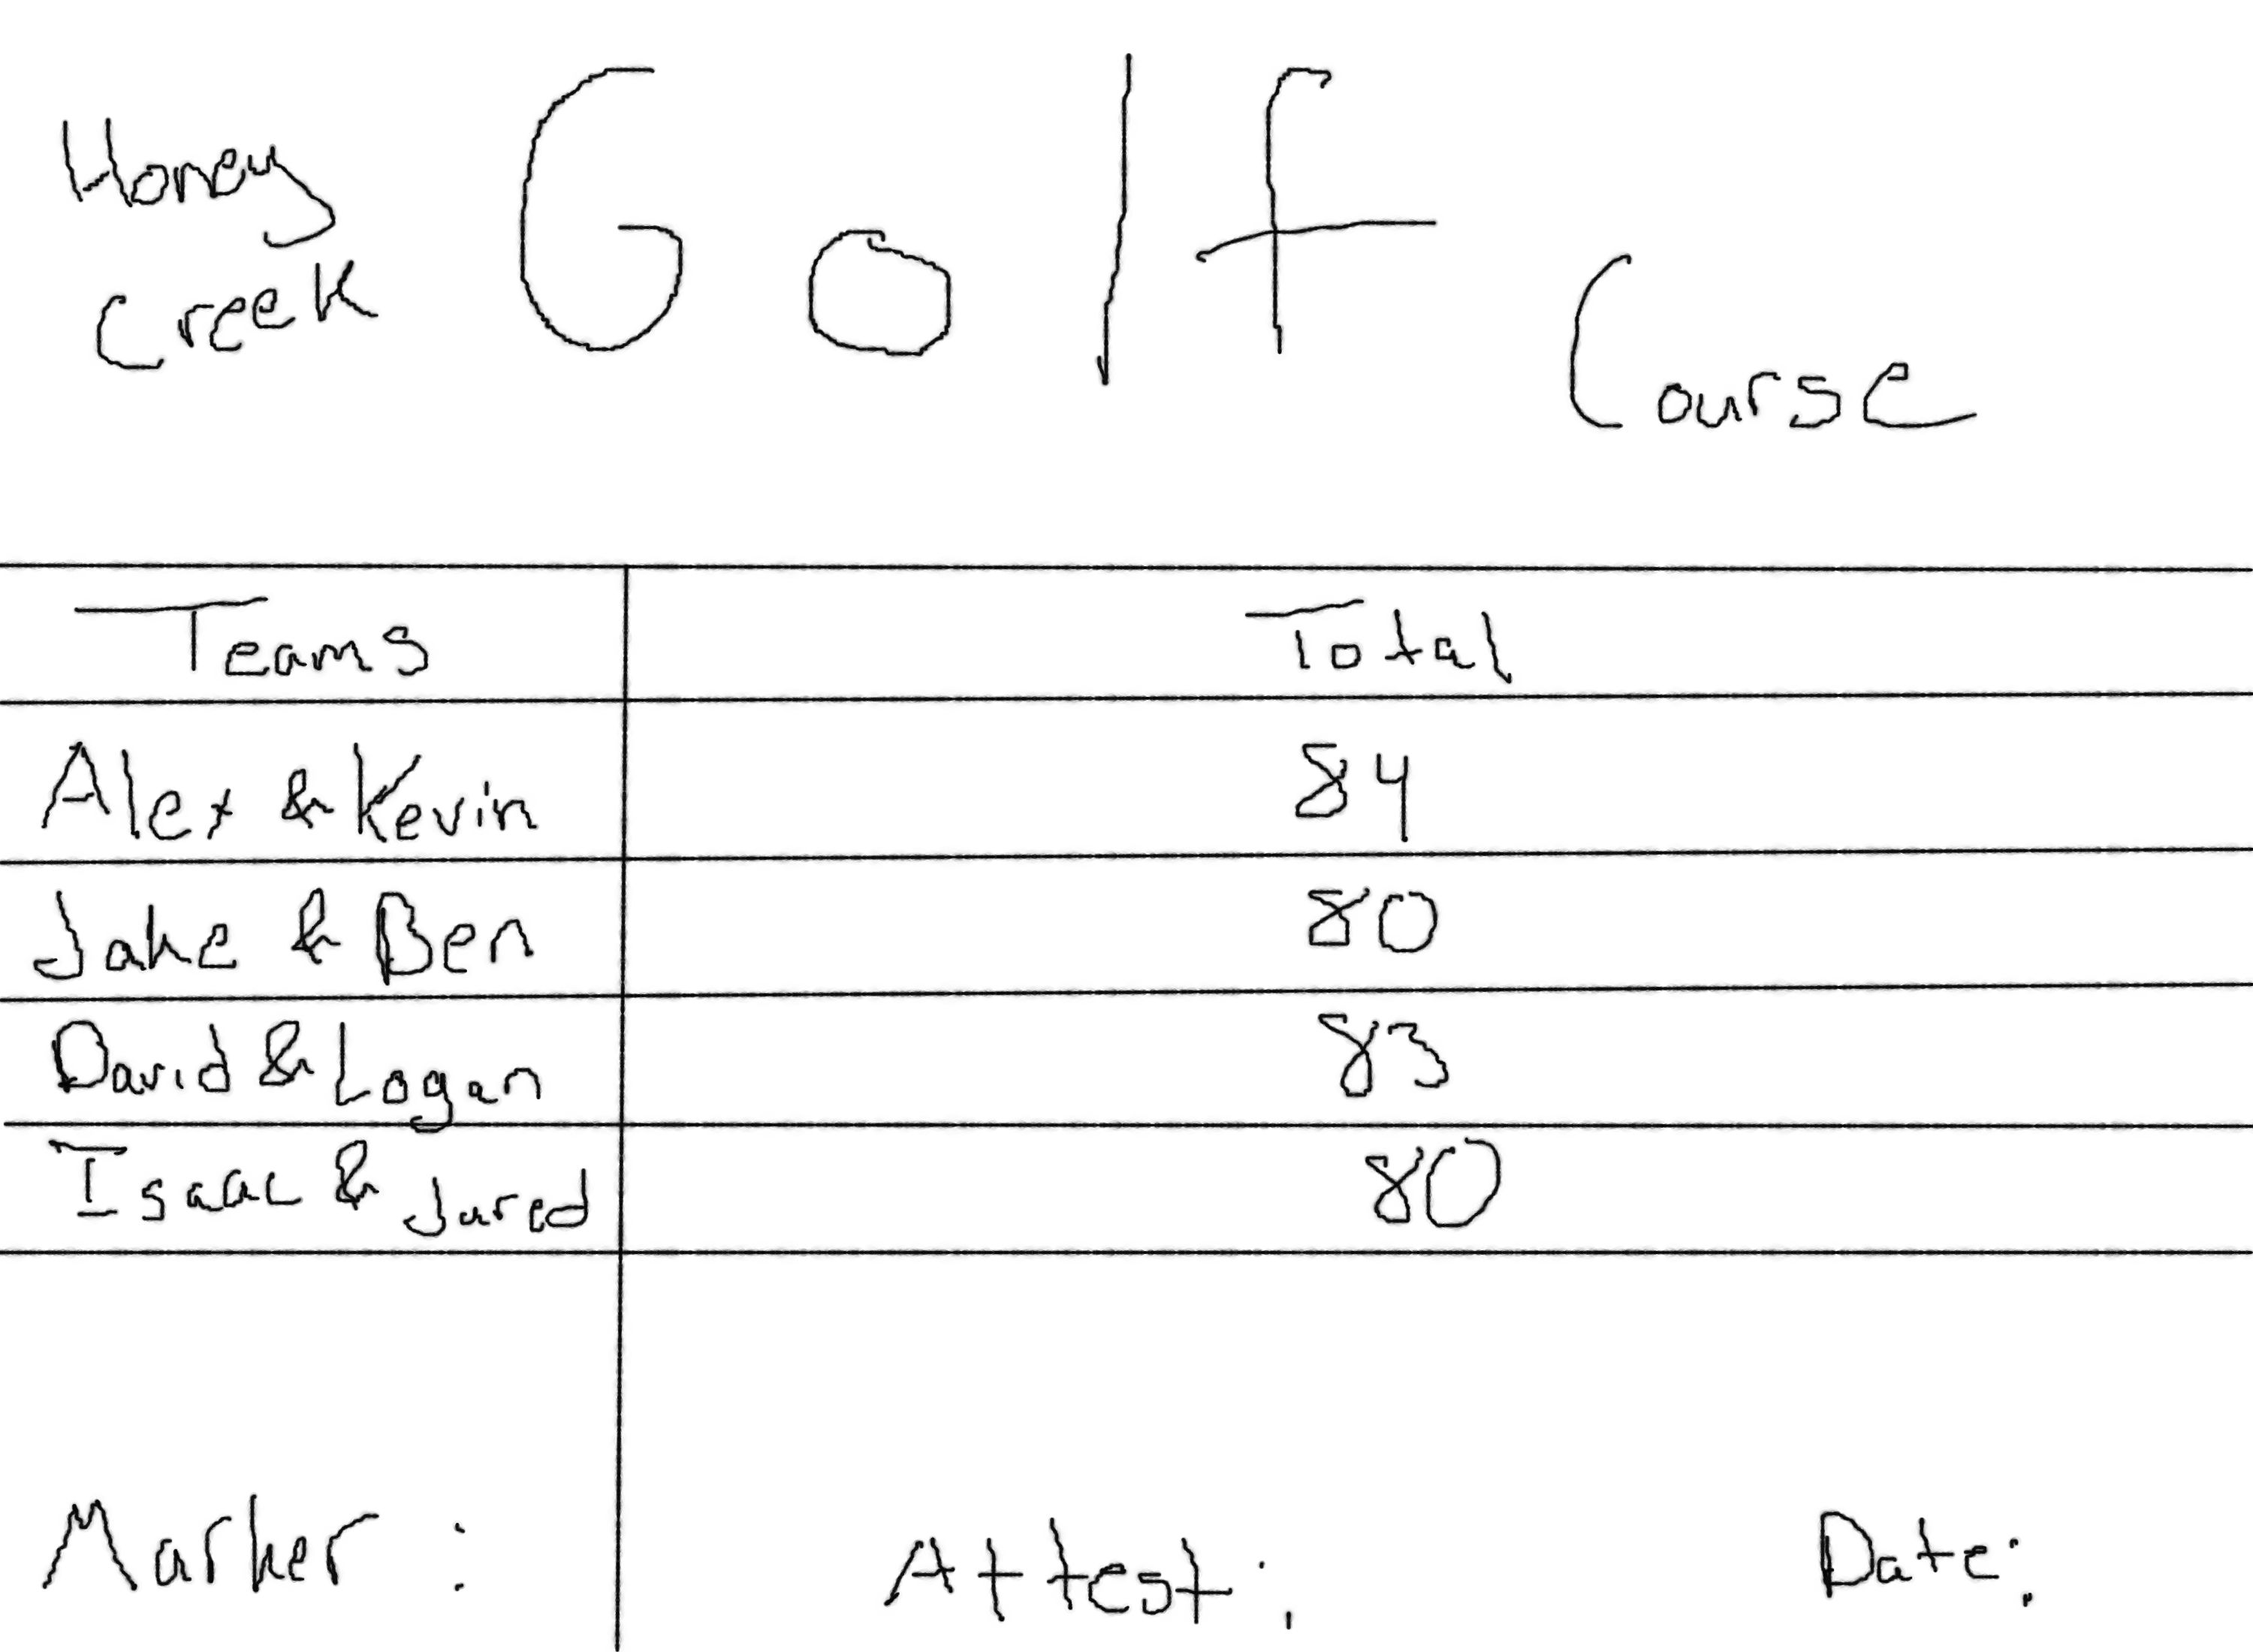 Honey
Creek Golf Course
Teams Total
Alex & Kevin 84
Jake & Ben 80
David & Logan 83
Isaac & Jared 80
Marker : Attest : Date: